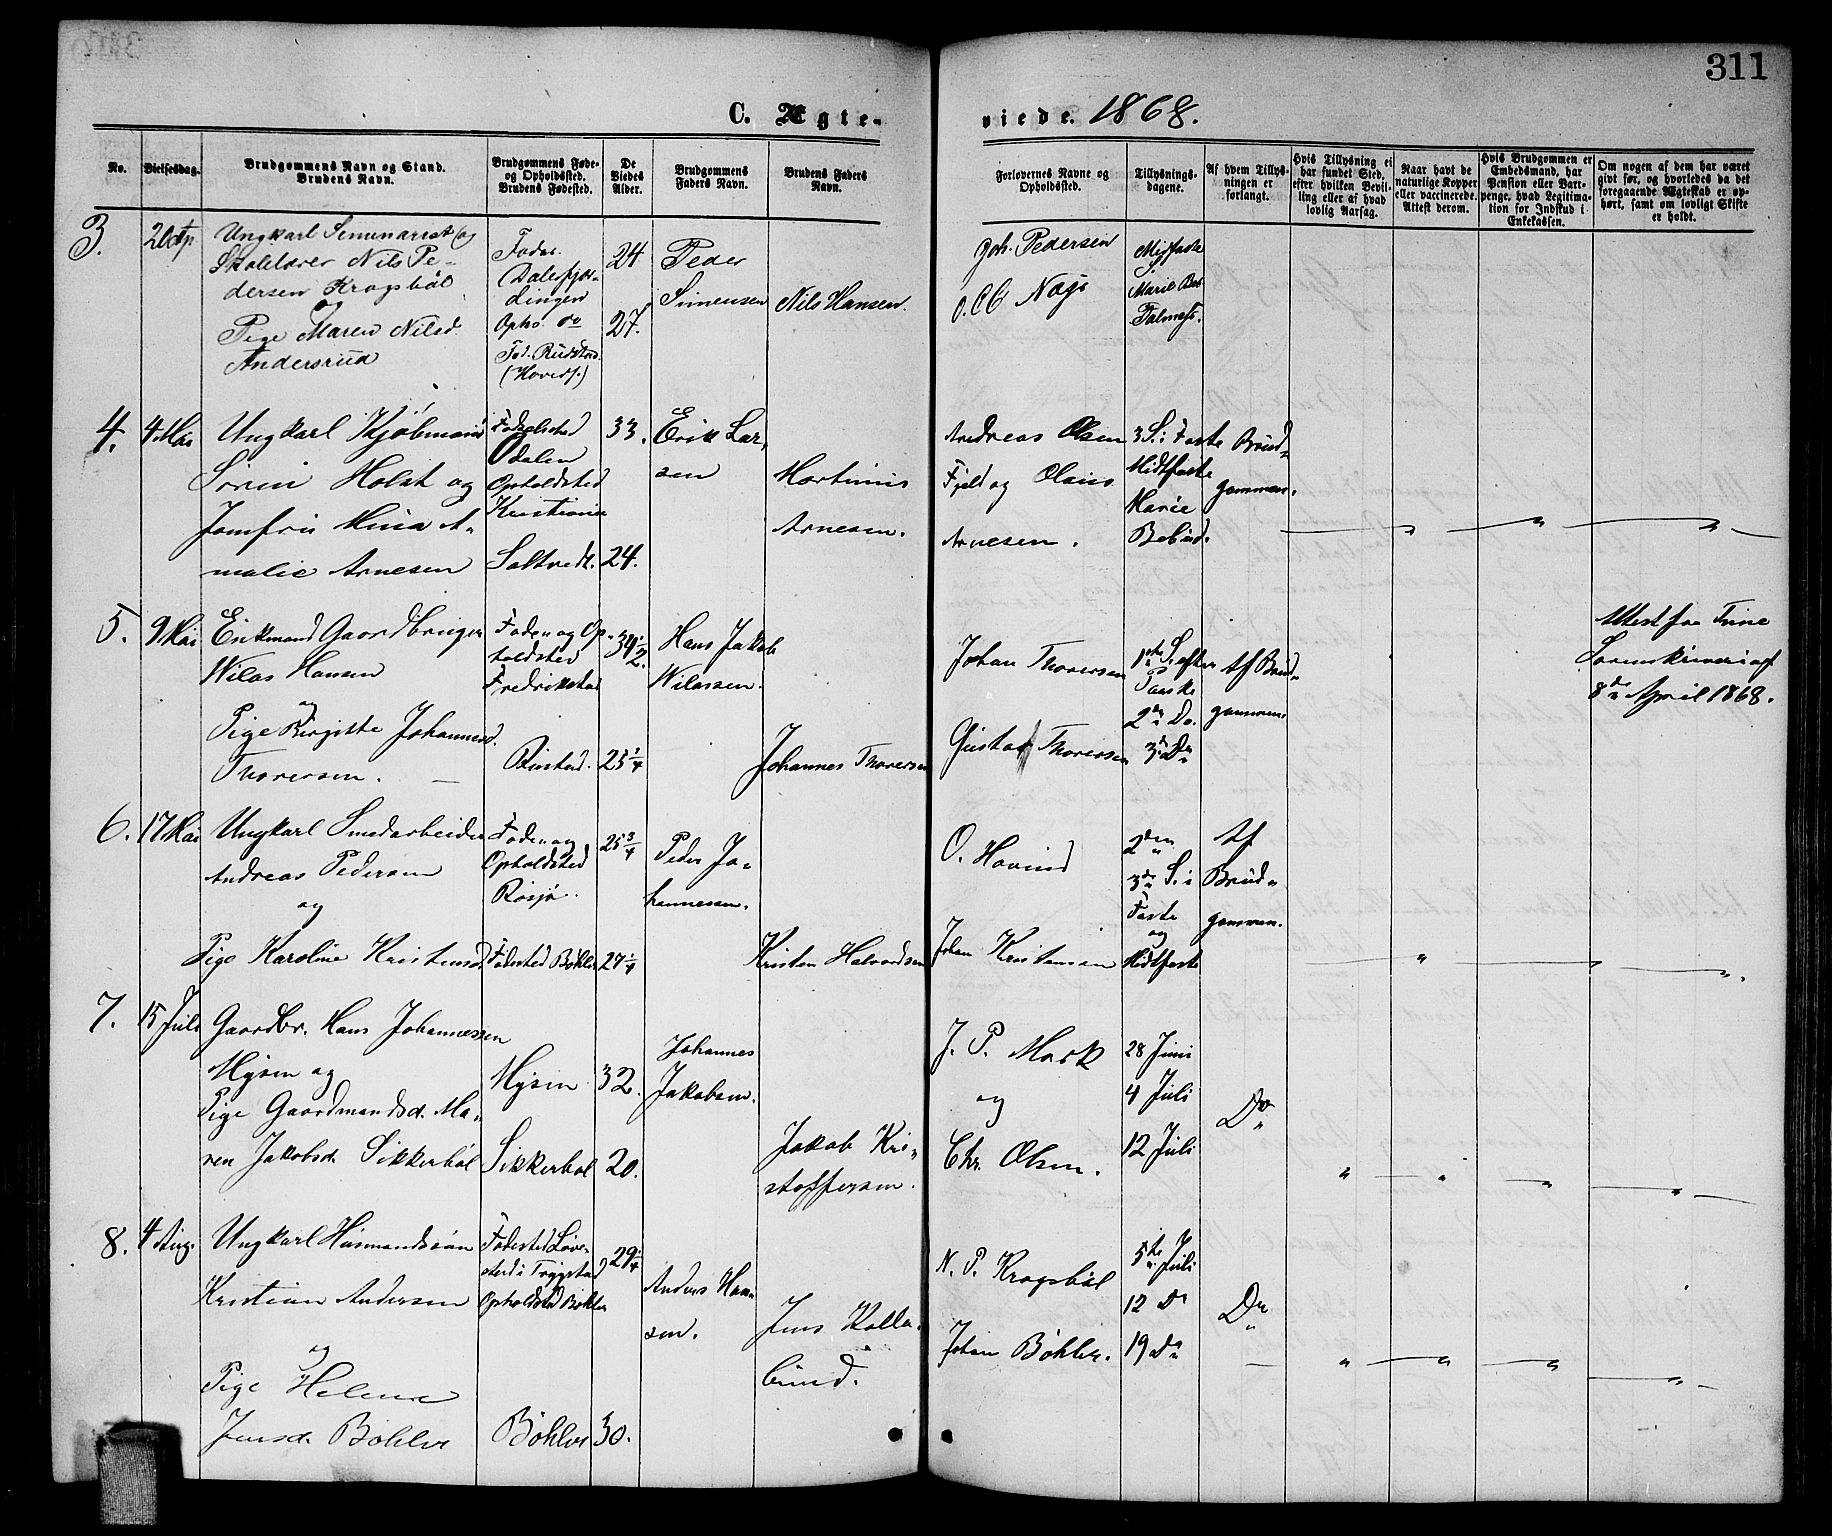 311
C. Ægteviede. 1868.
No.
Vielsesdag.
Brudgommens Navn og Stand.
Brudens Navn.
Brudgommens Føde-
og Opholdssted.
Brudens Fødested.
De
Viedes
Alder.
Brudgommens
Faders Navn.
Brudens Faders
Navn.
Forlovernes Navne og
Opholdssted.
Tillysnings-
dagene.
Af hvem Tillys-
ningen er
forlangt.
Hvis Tillysning ei
har fundet Sted,
efter hvilken Bevil-
ling eller af hvad
lovlig Aarsag.
Naar havt de
naturlige Kopper
eller vaccinerede.
Attest derom.
Hvis Brudgommen er
Embedsmand, har
Pension eller Vart-
penge, hvad Legitima-
tion for Indskud i
Enkekassen.
Om nogen af dem har været
givt før, og hvorledes da det
foregaaende Ægteskab er op-
hørt, samt om lovligt Skifte
er holdt.
3.
20 Ap
Ungkarl Seminarist og
Skolelærer Nils Pe-
dersen Kragsbøl
og
Pige Maren Nilsd.
Andersrud
Føde-
Dalesfjer-
dingen
Opho. do
Fød. Rudstad
24
27.
Peder
Simensen
Nils Hansen.
Joh. Pedersen
Midfaste
S.
Marie Beb
Palmes.
4.
4 Mai
Ungkarl Kjøbmand
Søren Holst og
Jomfru Mina A-
malie Arnesen
Fødested
Odalen
Opholdsted
Kristiania
Saltvedt.
33.
24.
Erik Lar-
sen
Martinus
Arnesen.
Andreas Olsen
Fjeld og Olaus
Arnesen.
3 S. i Faste
Midtfaste
Marie
Bebud.
Brud-
gommen.
5.
9 Mai
Enkemand Gaardbruger
Nilas Hansen
og
Pige Birgitte Johannesd.
Thoresen.
Føde- og Op-
holdsted
Fredrikstad
Rustad.
34 1/2.
25 1/4
Hans Jakob
Nilassen.
Johannes Thoresen
Johan Thoresen
Gustav Thoresen
1ste S. efter
Paaske
2den Do.
3de Do
Af Brud-
gommen.
Attest fra Tune
Sorenskriveri af
8de April 1868.
6.
17 Mai
Ungkarl Smedarbeider
Andreas Pedersen
og
Pige Karoline Kristensd.
Føde- og
Opholdsted
Rosjø.
Fødested Bøhler
25 3/4
27 1/4
Peder Jo-
hannessen.
Kristen Halvordsen
O. Hovind
Johan Kristensen
2den
3de S. i
Faste
og
Midtfaste
Af
Brud-
gommen.
7.
15 Juli
Gaardbr. Hans Johannessen
Mysen og
Pige Gaardmandsd. Ma-
ren Jakobsd. Sikkerbøl
Mysen
Sikkerbøl
32.
20.
Johannes
Jakobsen.
Jakob Kri-
stoffersen.
J. P. Mork
og
Chr. Olsen.
28 Juni
4 Juli
12 Juli
Do
8.
4 Aug.
Ungkarl Husmandssøn
Kristian Andersen
og
Pige Helene
Jensd. Bøhler
Fødested Løve-
sted i Trygstad
Opholdsted Bøhler
Bøhler
29 1/4
30.
Anders Han-
sen.
Jens Kolle-
rud.
N. P. Kragsbøl
Johan Bøhler.
5te Juli
12 Do
19 Do
Do